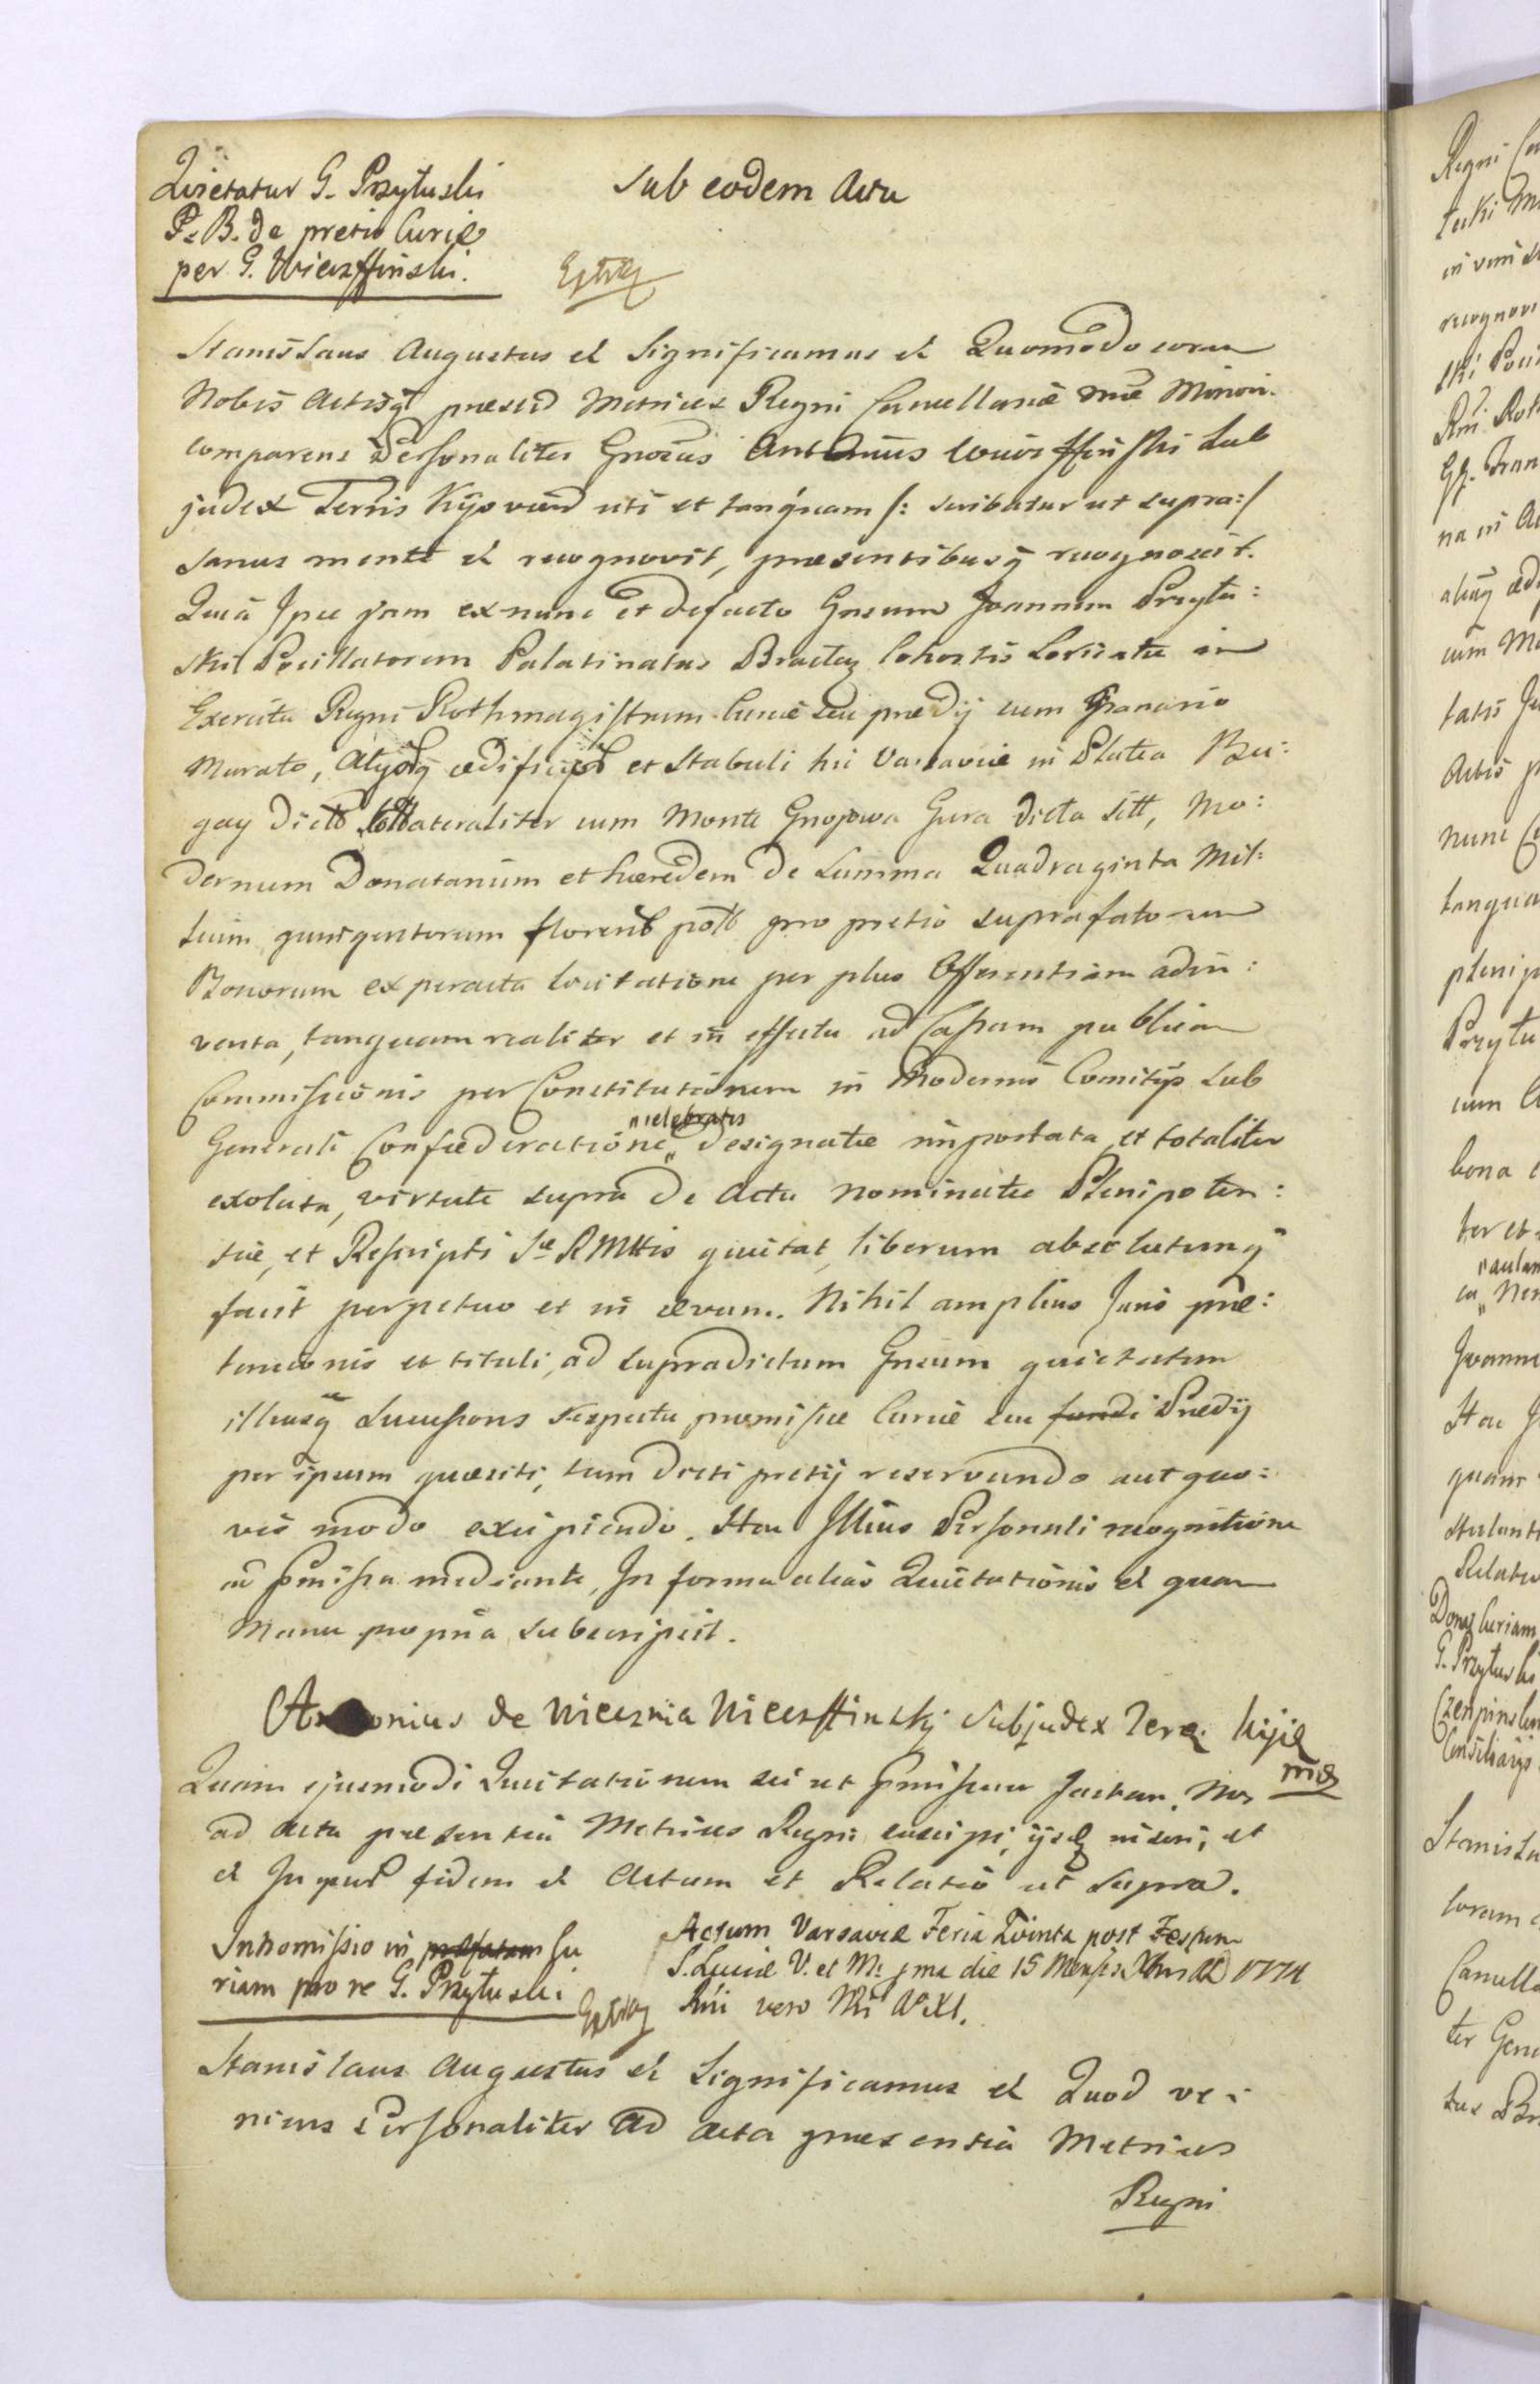 Quietatur G. Przyłuski
P. B. de pretio Curiæ
per G. Wierzffinski.
Sub eodem Actu
Stanislaus Augustus et Significamus et Quomodo coram
Nobis Actisq præsen Metrices Regni Cancellariæ Mino
comparens Personaliter Gnosus Antonius Wierzffinski Sub
judex Terris Kijovien uti et tanquam /: scribatur ut supra :/
sanus mente et recognovit, præsentibusq recognoscit.
Quia Ipse jam ex nunc et defacto Gnsum Joannem Przyłu:
ski Pocillatorem Palatinatus Braclaz Cohortis Loricatæ in
Exercitu Regni Rothmagistrum Curiæ seu prædij cum Granario
Murato, alijsq ædificijs et Stabuli hic Varsaviæ in Platea Bu:
gay dicto Collateraliter cum Monte Gnojowa Gura dicta sitt, mo:
dernum Donatarium et hæredem de Summa Quadraginta Mil:
lium quingentorum floren poll pro pretio suprafatorum
Bonorum ex peracta licitatione per plus Offerentiam adin:
venta, tanquam realiter et in effectu ad Cassam publicam
Commissionis per Constitutionem in Modernis Comitijs sub
Generali Confæderatione "celebratis designatæ importata et totaliter
exoluta, virtute supra de Actu nominatæ Plenipoten:
tiæ, et Rescripti Sæ RMttis quietat, liberum absolutumq
facit perpetuo et in ævum. Nihil amplius Juris præ:
tensionis et tituli, ad supradictum Gnsum quietatum
illiusq Successores respectu præmissæ Curiæ seu fundi Prædij
per ipsum quæsiti, tum dicti pretij reservando aut quo:
vis modo excipiendo. Hac Illius Personali recognitione
ad præmissa mediante, In forma alias Quietationis et quam
manu propria subscripsit.
Antonius de Wierznia Wierzffinsky Subjudex Terræ Kijæ
mp
Quam ejusmodi Quietationem sic ut præmissum factam, Nos
ad Acta præsentia Metrices Regni suscipi, ijsq inseri, et
et In quor fidem et Actum et Relatio ut Supra.
Intromissio in præfatam Cu
riam pro re G. Przyłuski
Actum Varsaviæ Feria Quinta post Festum
S. Luciæ V. et M. ma die 15 Mensis Xbris AD 1774
Rni vero Nri Ao XI.
Stanislaus Augustus et Significamus et Quod ve:
niens Personaliter ad Acta præsentia Metrices
Regni